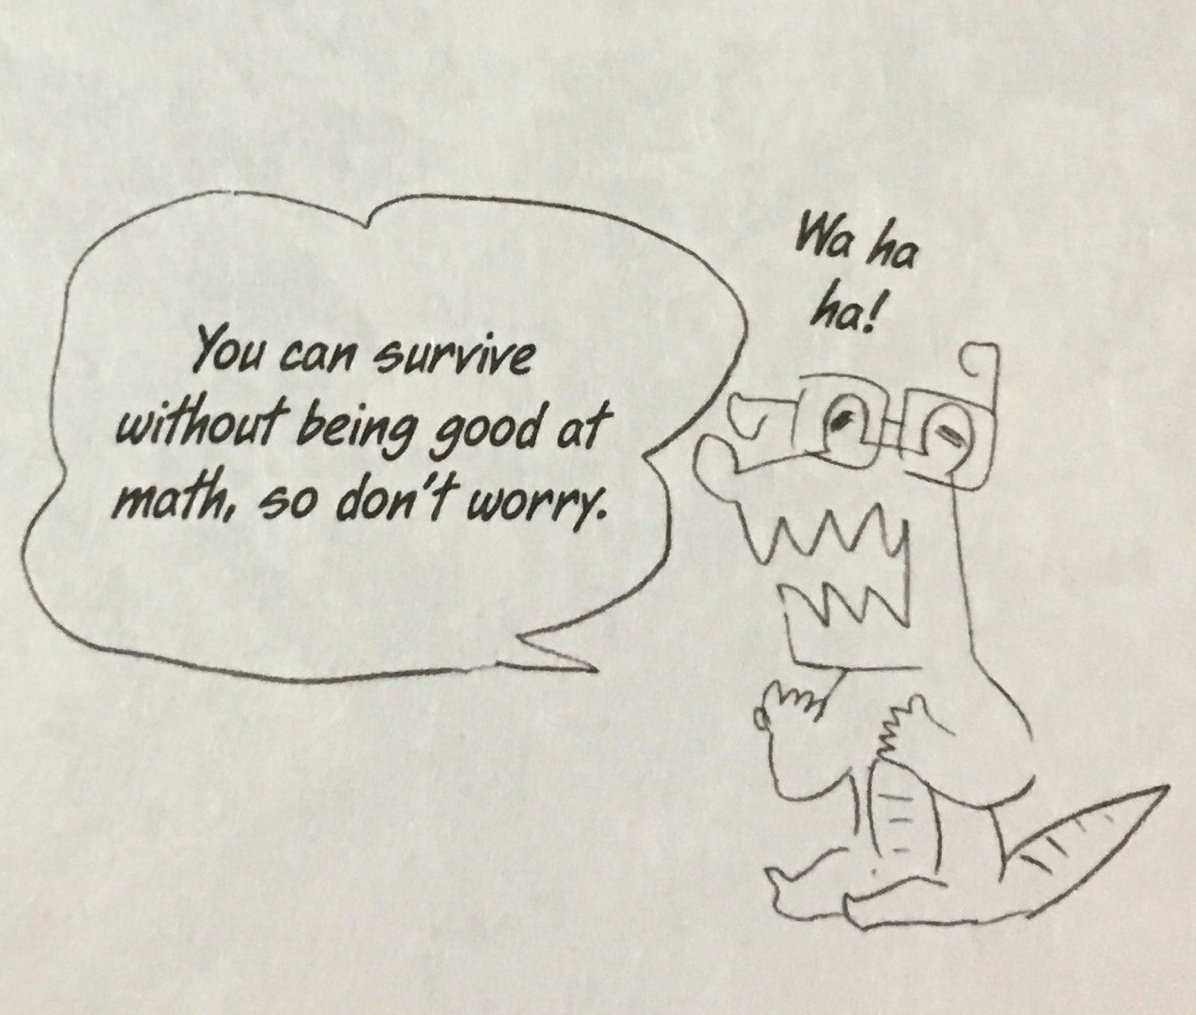 You can survive
without being good at
math, so don't worry.
Wa ha
ha!